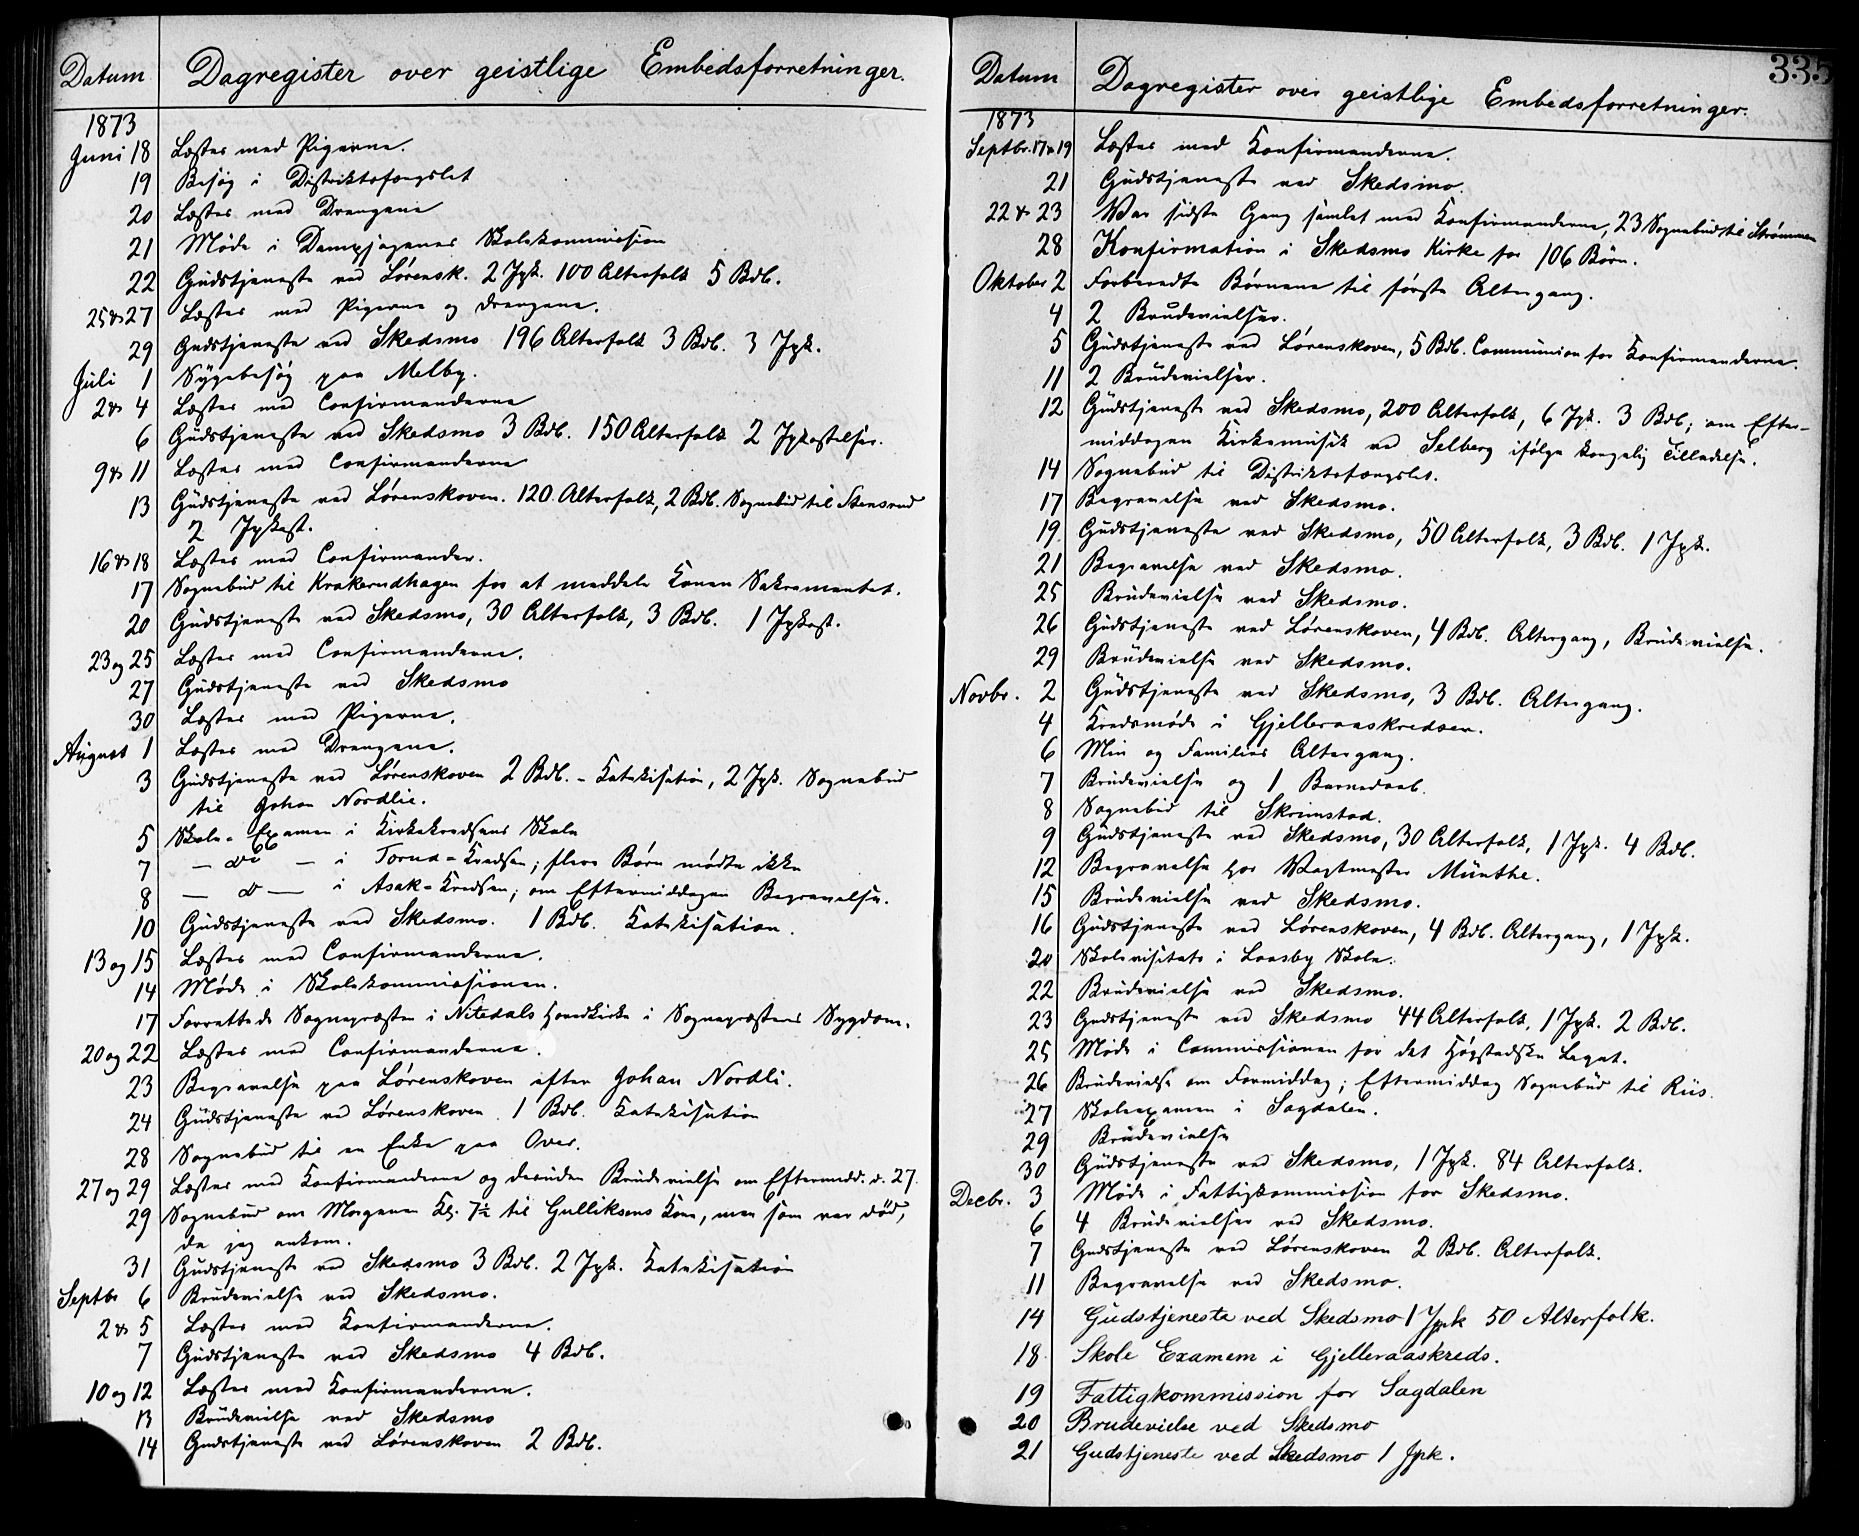 Datum Dagregister over geistlige Embedsforretninger.
1873
Juni 18 Læstes med Pigerne.
19 Besøg i Distriktsfængslet
20 Læstes med Drengene
21 Møde i Dampsagenes Skolekommission
22 Gudstjeneste ved Lørensk. 2 Jgk. 100 Alterfolk 5 Bdb.
25 & 27 Læstes med Pigerne og Drengene.
29 Gudstjeneste ved Skedsmo 196 Alterfolk 3 Bdb. 3 Jgk.
Juli 1 Sygebesøg paa Melby.
2 & 4 Læstes med Confirmanderne
6 Gudstjeneste ved Skedsmo 3 Bdb. 150 Alterfolk 2 Jgkastelser.
9 & 11 Læstes med Confirmanderne
13 Gudstjeneste ved Lørenskoven. 120 Alterfolk, 2 Bdb. Sognebud til Stensrud
2 Jgkast.
16 & 18 Læstes med Confirmander.
17 Sognebud til Krakerudhagen for at meddele Konen Sakramentet.
20 Gudstjeneste ved Skedsmo, 30 Alterfolk, 3 Bdb. 1 Jgkast.
23 og 25 Læstes med Confirmanderne.
27 Gudstjeneste ved Skedsmo
30 Læstes med Pigerne.
August 1 Læstes med Drengene.
3 Gudstjeneste ved Lørenskoven 2 Bdb. - Katekisation, 2 Jgk. Sognebud
til Johan Nordlie.
5 Skole-Examen i Kirkekredsens Skole
7 — do — i Torud-Kredsen; flere Børn mødte ikke
8 — do — i Asak-Kredsen; om Eftermiddagen Begravelse.
10 Gudstjeneste ved Skedsmo. 1 Bdb. Katekisation.
13 og 15 Læstes med Confirmanderne.
14 Møde i Skolekommissionen.
17 Forrettede Sognepræsten i Nitedals Hovedkirke i Sognepræstens Sygdom.
20 og 22 Læstes med Confirmanderne.
23 Begravelse paa Lørenskoven efter Johan Nordli.
24 Gudstjeneste ved Lørenskoven. 1 Bdb. Katekisation
28 Sognebud til en Enke paa Over.
27 og 29 Læstes med Konfirmanderne og desuden Brudevielse om Eftermidd. d. 27.
29 Sognebud om Morgenen Kl. 7½ til Gulliksens Kone, men som var død,
da jeg ankom.
31 Gudstjeneste ved Skedsmo 3 Bdb. 2 Jgk. Katekisation
Septbr 6 Brudevielse ved Skedsmo.
2 & 5 Læstes med Konfirmanderne.
7 Gudstjeneste ved Skedsmo 4 Bdb.
10 og 12 Læstes med Konfirmanderne.
13 Brudevielse ved Skedsmo
14 Gudstjeneste ved Lørenskoven 2 Bdb.
335
Datum Dagregister over geistlige Embedsforretninger.
1873
Septbr. 17 & 19 Læstes med Konfirmanderne.
21 Gudstjeneste ved Skedsmo.
22 & 23 Var sidste Gang samlet med Konfirmanderne, 23 Sognebud til Strømmen
28 Konfirmation i Skedsmo Kirke for 106 Børn.
Oktober 2 Forberedte Børnene til første Altergang.
4 2 Brudevielser.
5 Gudstjeneste ved Lørenskoven, 5 Bdb. Communion for Konfirmanderne.
11 2 Brudevielser.
12 Gudstjeneste ved Skedsmo, 200 Alterfolk, 6 Jgk. 3 Bdb; om Efter-
middagen Kirkemusik ved Selberg ifølge kongelig Tilladelse.
14 Sognebud til Distriktsfængslet.
17 Begravelse ved Skedsmo.
19 Gudstjeneste ved Skedsmo, 50 Alterfolk, 3 Bdb. 1 Jgk.
21 Begravelse ved Skedsmo.
25 Brudevielse ved Skedsmo.
26 Gudstjeneste ved Lørenskoven, 4 Bdb. Altergang, Brudevielse.
29 Brudevielse ved Skedsmo.
Novbr. 2 Gudstjeneste ved Skedsmo, 3 Bdb. Altergang.
4 Kredsmøde i Gjelleraaskredsen.
6 Min og Families Altergang.
7 Brudevielse og 1 Barnedaab.
8 Sognebud til Skrimstad.
9 Gudstjeneste ved Skedsmo, 30 Alterfolk, 1 Jgk. 4 Bdb.
12 Begravelse hos Vagtmester Münthe.
15 Brudevielse ved Skedsmo.
16 Gudstjeneste ved Lørenskoven, 4 Bdb. Altergang, 1 Jgk.
20 Skolevisitats i Laasby Skole.
22 Brudevielse ved Skedsmo.
23 Gudstjeneste ved Skedsmo 44 Alterfolk, 1 Jgk. 2 Bdb.
25 Møde i Commissionen for det Høgstadske Legat.
26 Brudevielse om Formiddag; Eftermiddag Sognebud til Riis.
27 Skoleexamen i Sagdalen.
29 Brudevielse
30 Gudstjeneste ved Skedsmo, 1 Jgk. 84 Alterfolk.
Decbr. 3 Møde i Fattigkommission for Skedsmo.
6 4 Brudevielser ved Skedsmo.
7 Gudstjeneste ved Lørenskoven 2 Bdb. Alterfolk.
11 Begravelse ved Skedsmo.
14 Gudstjeneste ved Skedsmo 1 Jgk 50 Alterfolk.
18 Skole Examem i Gjelleraaskreds.
19 Fattigkommission for Sagdalen
20 Brudevielse ved Skedsmo
21 Gudstjeneste ved Skedsmo 1 Jgk.